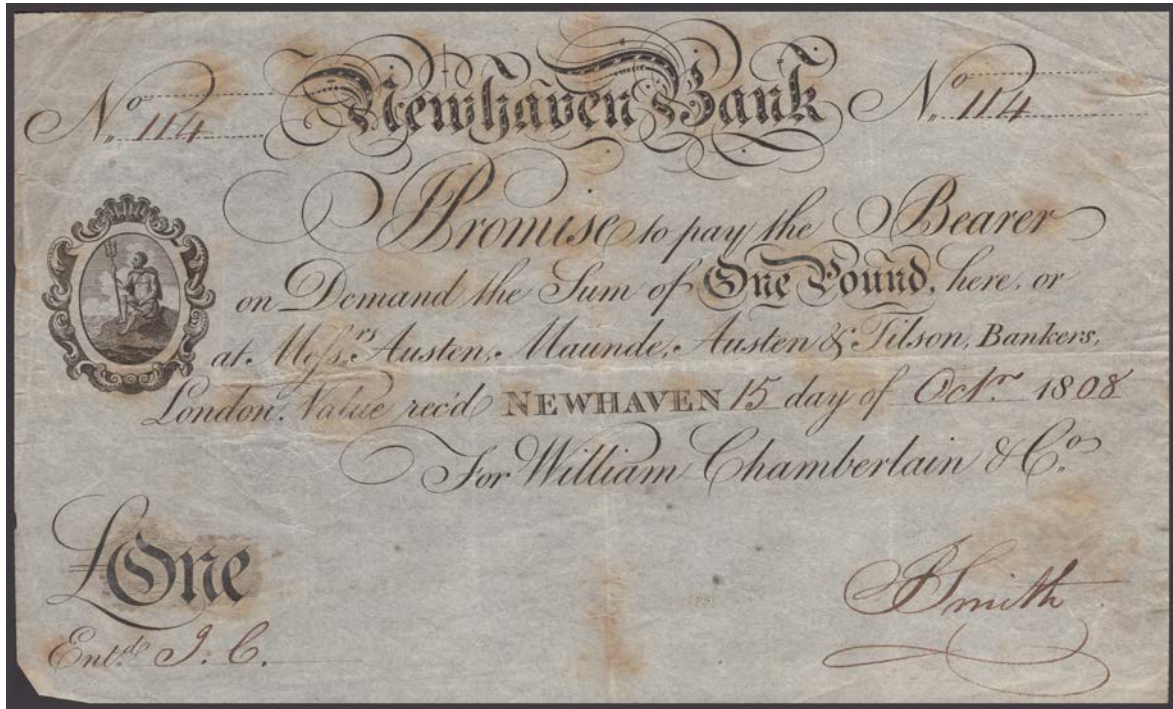 No. 114 Newhaven Bank No. 114
I Promise to pay the Bearer
on Demand the Sum of One Pound, here, or
at Messrs. Austen, Maunde, Austen & Tilson, Bankers,
London. Value rec'd NEWHAVEN 15 day of Octr. 1808
For William Chamberlain & Co.
£One
Entd. J. C.
Smith